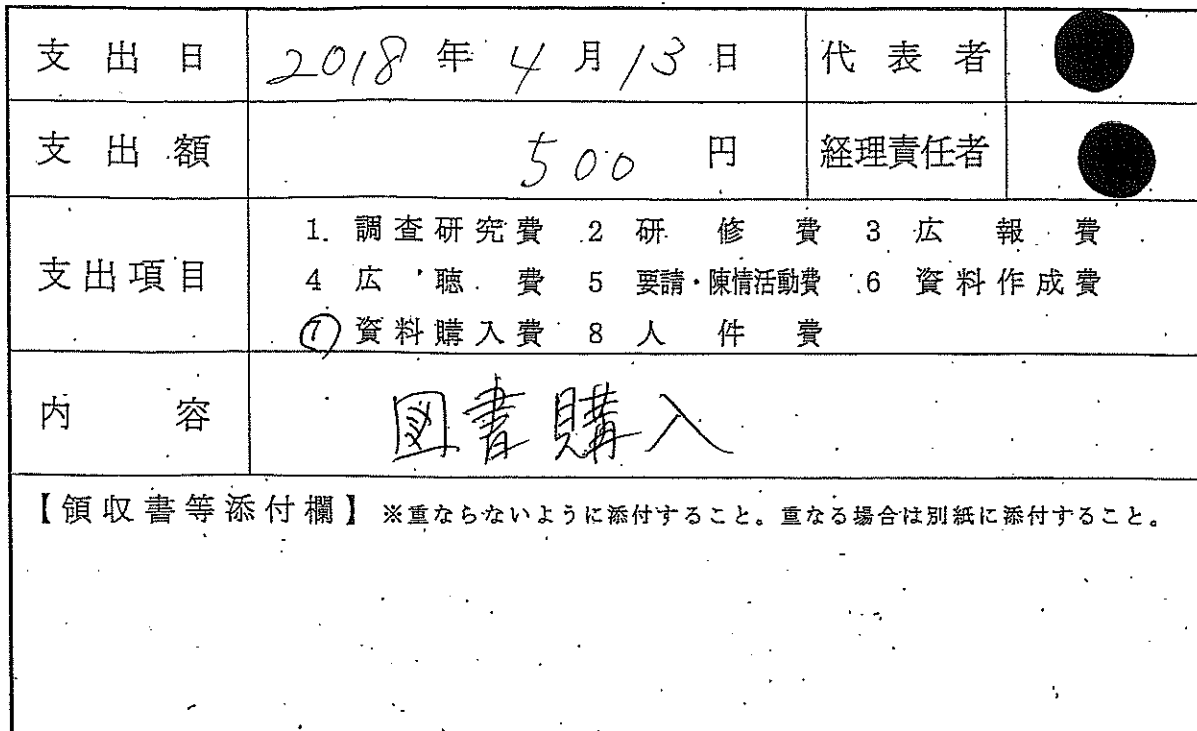 支出日 2018年4月13日 代表者
支出額 500円 経理責任者
支出項目
1 調査研究費 2 研修費 3 広報費
4 広聴費 5 要請・陳情活動費 6 資料作成費
7 資料購入費 8 人件費
内容 図書購入
【領収書等添付欄】※重ならないように添付すること。重なる場合は別紙に添付すること。